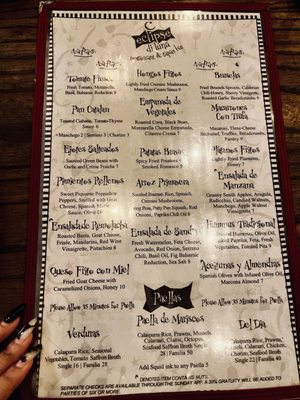 eclipse
di luna
Tapas
Tapas
Tapas
Tomate Fresco
Fresh Tomato, Mozzarella,
Basil, Balsamic Reduction 8
Pan Catalan
Toasted Ciabatta, Tomato-Thyme
Sauce 6
+Manchego 2 | Serrano 3 | Chorizo 3
Ejotes Salteados
Sauteed Green Beans with
Garlic and Crème Fraiche 7
Pimientos Rellenos
Sweet Piquante Peppadew
Peppers, Stuffed with Goat
Cheese, Spanish Marie
Sauce, Olive
Ensalada de Remolacha
Roasted Beets, Goat Cheese,
Frisée, Mandarins, Red Wine
Vinaigrette, Pistachios 8
Queso Frito con Miel
Fried Goat Cheese with
Caramelized Onions, Honey 10
Hongos Fritos
Lightly Fried Cremini Mushrooms,
Manchego Cream Sauce 9
Empanada de
Vegetales
Roasted Corn, Black Bean,
Mozzarella Cheese Empanada,
Cilantro Crema 7
Patatas Bravas
Spicy Fried Potatoes +
Smoked Romesco 8
Arroz Primavera
Sauteed Bomba Rice, Spinach,
Cremini Mushrooms,
Red
Onions, Paprika Chili Oil 8
Ensalada de Sandia
Fresh Watermelon, Feta Cheese,
Avocado, Red Onion, Serrano
Chili, Basil Oil, Fig Balsamic
Reduction, Sea Salt 8
Bruselas
Fried Brussels Sprouts, Calabrian
Chili-Honey, Sherry Vinegar,
Roasted Garlic Breadcrumbs 9
Macarrones
Con Trufa
Macaroni, Three-Cheese
Béchamel, Truffles, Breadcrumbs,
Parsley 9
Platanos Fritos
Lightly Fried Plantains,
Honey 7
Ensalada de
Manzana
Granny Smith Apples, Arugula,
Radicchio, Candied Walnuts,
Manchego, Apple Walnut
Vinaigrette 9
Hummus Tradicional
Olive Oil,
Paprika, Feta, Fresh
Vegetables, Toasted Pita 9
Aceitunas y Almendras
Spanish Olives with Infused Olive Oil,
Marcona Almond 7
Paellas
Please Allow 35 Minutes for Paella
Please Allow 35 Minutes for Paella
Verduras
Calasparra Rice, Seasonal
Vegetables, Tomato Saffron Broth
Single 16 | Familia 28
Paella de Mariscos
Calasparra Rice, Prawns, Mussels,
Calamari, Clams, Octopus,
Seafood Saffron Broth Single
28 | Familia 50
Add Squid ink to any Paella 5
Del Dia
Calasparra Rice, Prawns,
Clams, Calamari, Chicken,
Chorizo, Seafood Broth
Single 22 | Familia 40
*DENOTES ITEM CONTAINS NUTS.
SEPARATE CHECKS ARE AVAILABLE THROUGH THE SUNDAY APP. A 20% GRATUITY WILL BE ADDED TO
PARTIES OF SIX OR MORE.